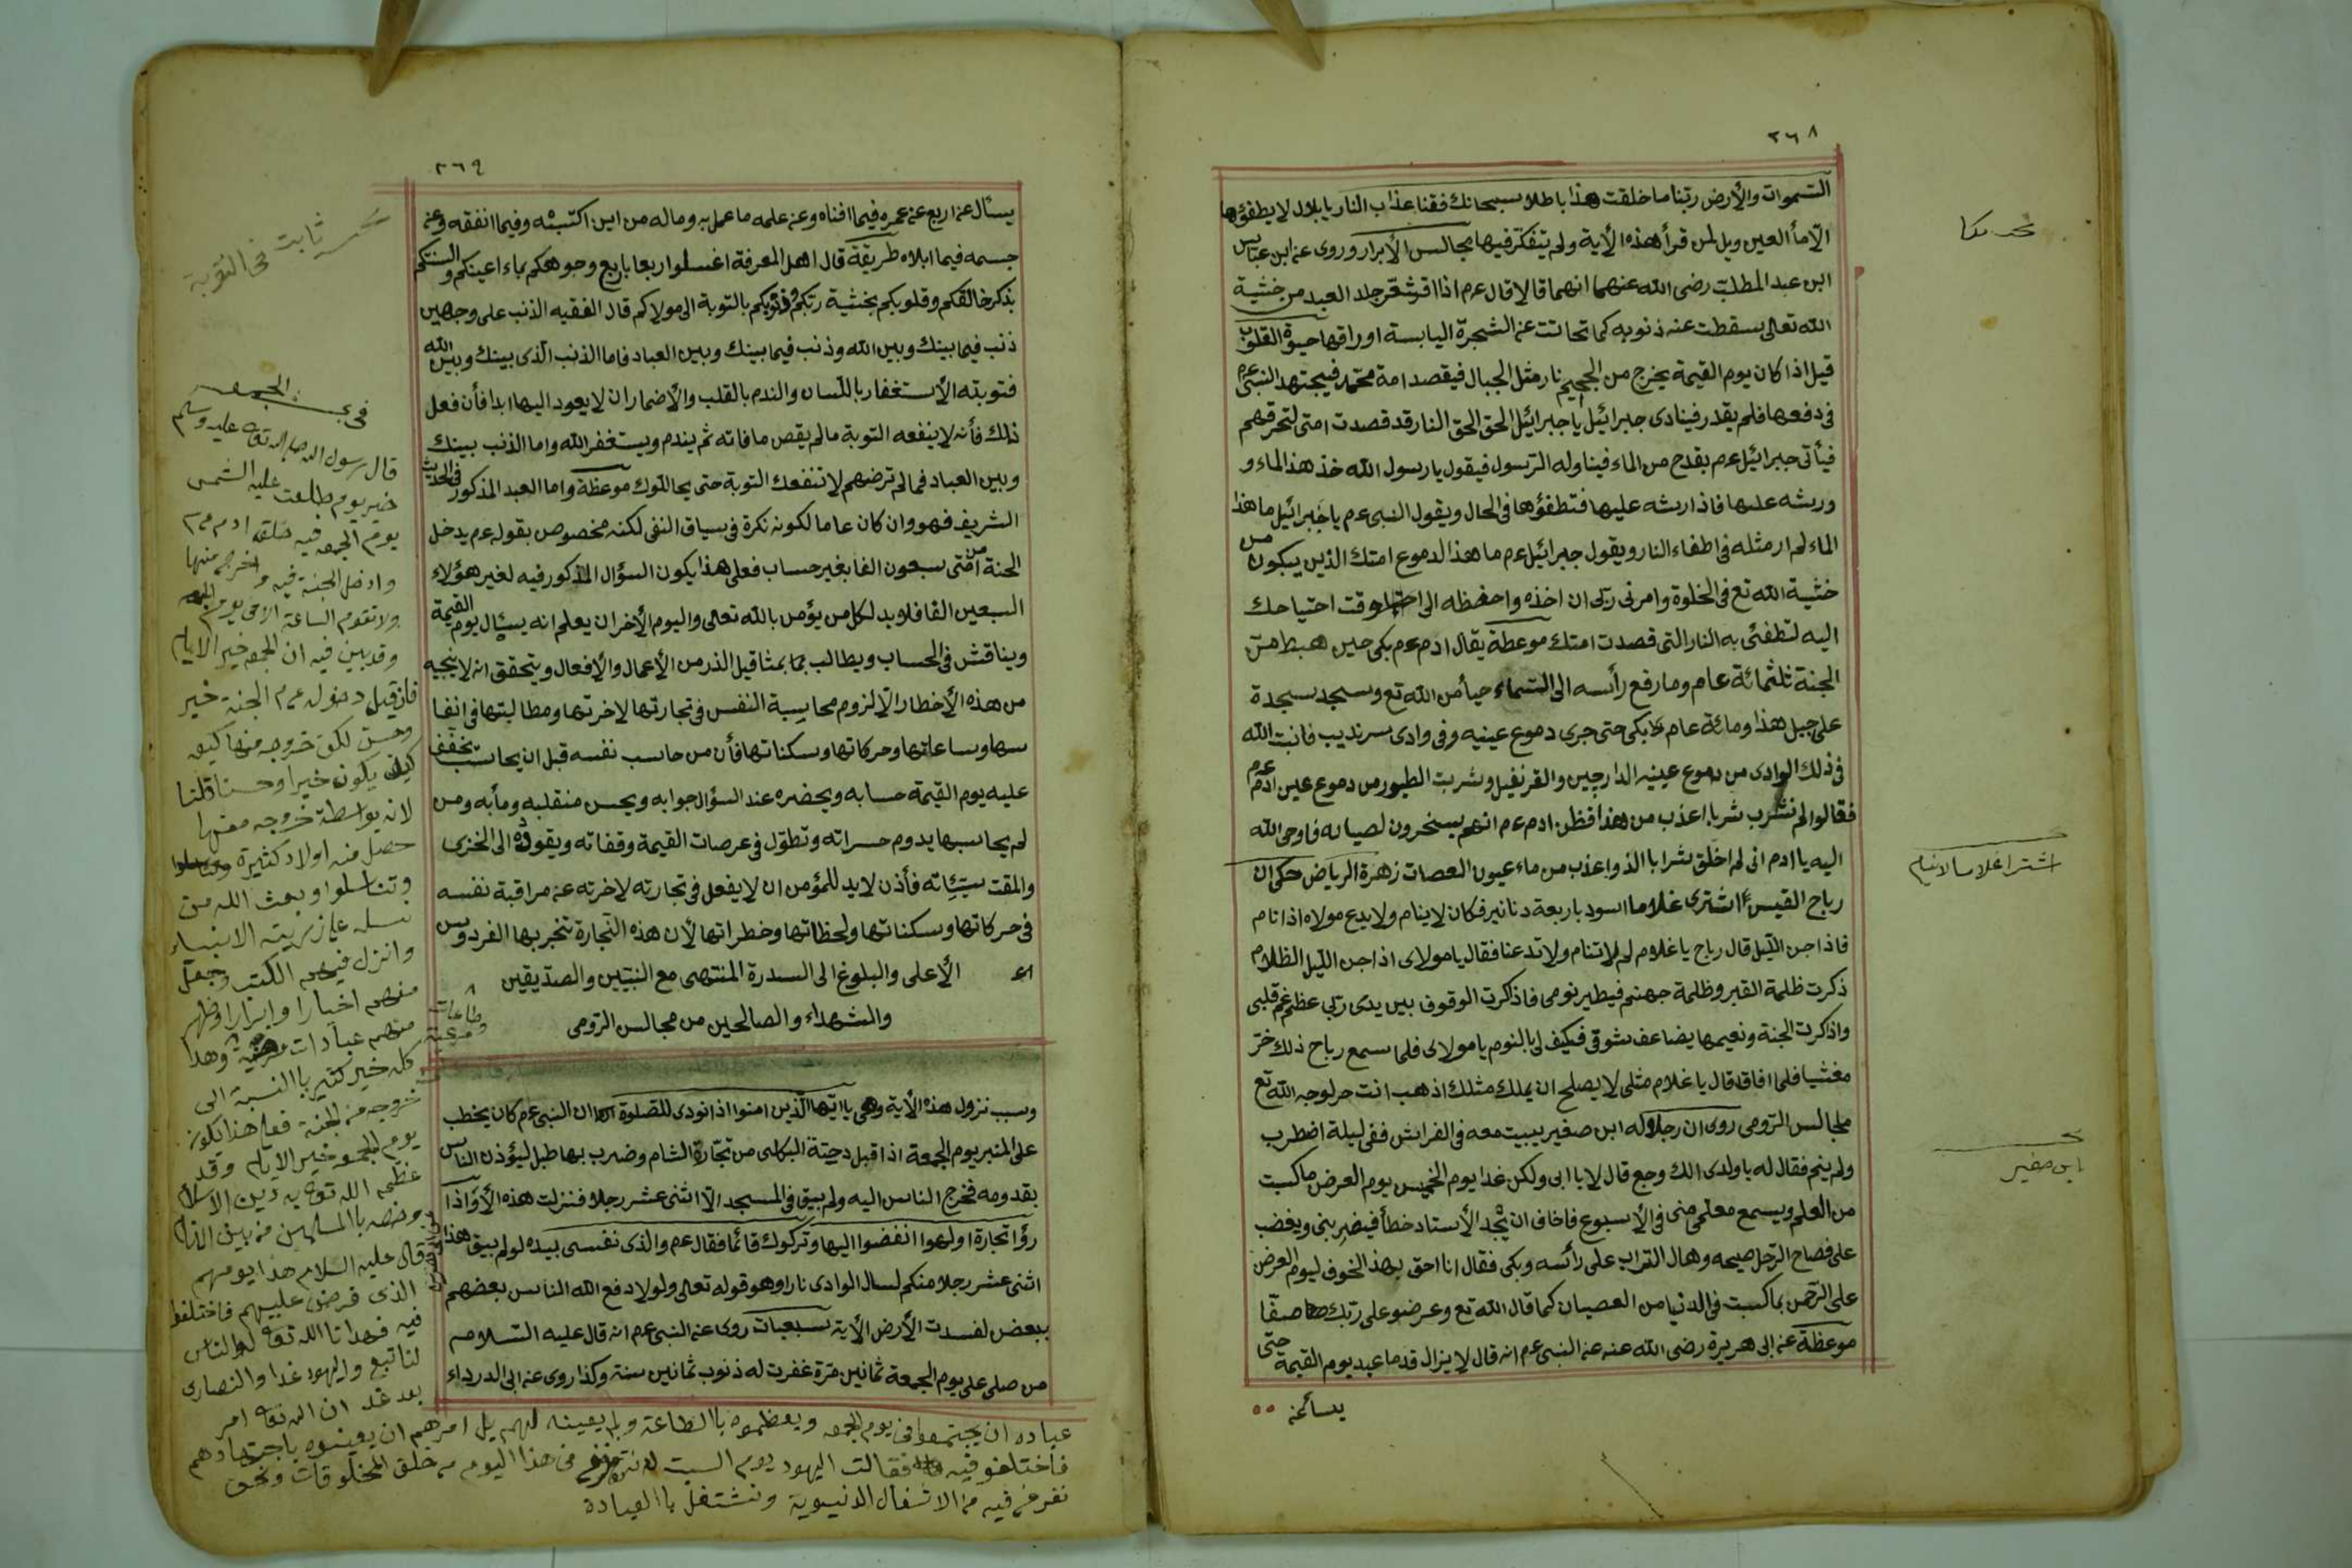 ٢٦٨
السموات والأرض ربنا ما خلقت هذا باطلا سبحانك فقنا عذاب النار يا بلال لا يطفؤها
الا مأ العين ويل لمن قرأ هذه الأية ولم يتفكر فيها مجالس الأبرار وروى عن ابن عباس
ابن عبد المطلب رضى الله عنهما انهما قالا قال عم اذا اقشعر جلد العبد من خشية
الله تعالى سقطت عنه ذنوبه كما تحاتت عن الشجرة اليابسة اوراقها حيوة القلوب
قيل اذا كان يوم القيمة يخرج من الجحيم نار مثل الجبال فيقصد امة محمد فيجتهد النبى عم
فى دفعها فلم يقدر فينادى جبرائيل يا جبرائيل الحق الحق النار قد قصدت امتى لتحرقهم
فيأتى جبرائيل عم بقدح من الماء فيناوله الرسول فيقول يا رسول الله خذ هذ الماء و
ورشه عليها فاذا رشه عليها فتطفؤها فى الحال ويقول النبى عم يا جبرائيل ما هذا
الماء لم ار مثله فى اطفاء النار ويقول جبرائيل عم ما هذا لدموع امتك الذين يبكون من
خشية الله تع فى الخلوة وامرنى ربى ان اخذه واحفظه الى وقت احتياحك
اليه لتطفئ به النار التى قصدت امتك موعظة يقال ادم عم بكى حين هبط من
الجنة ثلثمائة عام وما رفع رأسه الى السماء حيأ من الله تع وسجد سجدة
على جبل هذا ومائة عام بكى حتى جرى دموع عينيه وفى وادى سرنديب فانبت الله
فى ذلك الوادى من دموع عينيه الدارجين والقرنفيل وشربت الطيور من دموع عين ادم عم
فقالوا لم نشرب شربا اعذب من هذا فظن ادم عم انهم يسخرون لصيانه فاوحى الله
اليه يا ادم انى لم اخلق شرابا الذ واعذب من ماء عيون العصات زهرة الرياض حكى ان
رباح القيس اشترى غلاما اسود باربعة دنانير فكان لا ينام ولا يدع مولاه اذا نام
فاذا جن الليل قال رباح يا غلام لم لا تنام ولا تدعنا فقال يا مولاى اذا جن الليل الظلام
ذكرت ظلمة القبر وظلمة جهنم فيطير نومى فاذاكرت الوقوف بين يدى ربى عظم غم قلبى
واذاكرت الجنة ونعيمها يضاعف شوقى فكيف لى بالنوم يا مولاى فلما سمع رباح ذلك خر
مغشيا فلما افاق قال يا غلام مثلى لا يصلح ان يملك مثلك اذهب انت حر لوجه الله تع
مجالس الرومى روى ان رجلا وله ابن صغير يبيت معه فى الفراش ففى ليلة اضطرب
ولم ينم فقال له يا ولدى الك وجع قال لا يا ابى ولكن غدا يوم الخميس يوم العرض ما كسبت
من العلم ويسمع معلمى منى فى الأسبوع فاخاف ان يجد الأستاد خطأ فيضربنى ويغضب
على فصاح الرجل صيحه وهال التراب على رأئسه وبكى فقال انا احق بهذ الخوف ليوم العرض
على الرحمن بما كسبت فى الدنيا من العصيان كما قال الله تع وعرضو على ربك صفا
موعظة عن ابى هريرة رضى الله عنه عن النبى عم انه قال لا يزال قدما عبد يوم القيمة حتى
يسأعن
اشترا غلاما لا ينام
ابن صغير
٢٦٩
يسأل عن اربع عن عمره فيما افناه وعن علمه ما عمل به وماله من اين اكتسبه وفيما انفقه وعن
جسمه فيما ابلاه طريقة قال اهل المعرفة اغسلوا اربعا باربع وجوهكم بماء اعينكم والسنتكم
بذكر خالقكم وقلوبكم بخشية ربكم وذنوبكم بالتوبة الى مولاكم قال الفقيه الذنب على وجهين
ذنب فيما بينك وبين الله وذنب فيما بينك وبين العباد فاما الذنب الذى بينك وبين الله
فتوبته الأستغفار باللسان والندم بالقلب والأضمار ان لا يعود اليها ابدا فأن فعل
ذلك فأنه لا ينفعه التوبة مالم يقض ما فاته ثم يندم ويستغفر الله واما الذنب بينك
وبين العباد فما لم ترضهم لا تنفعك التوبة حتى يحاللوك موعظة واما العبد المذكور فى الحديث
الشريف فهو وان كان عاما لكونه نكرة فى سياق النفى لكنه مخصوص بقوله عم يدخل
الجنة من امتى سبعون الفا بغير حساب فعلى هذا يكون السؤال المذكور فيه لغير هؤلاء
السبعين الفا فلا بد لكل من يؤمن بالله تعالى واليوم الأخر ان يعلم انه يسئال يوم القيمة
ويناقش فى الحساب ويطالب بما بمثاقيل الذر من الأعمال والأفعال ويتحقق انه لا ينجيه
من هذه الأخطار الا لزوم محاسبة النفس فى تجارتها لاخرتها ومطالبتها فى انفا
سها وساعاتها وحركاتها وسكناتها فأن من حاسب نفسه قبل ان يحاسب تخفف
عليه يوم القيمة حسابه ويحضره عند السؤال جوابه ويحسن منقلبه ومأبه ومن
لم يحاسبها يدوم حسراته وتطول فى عرصات القيمة وقفاته ويقوده الى الخزى
والمقت سيئاته فأذن لابد للمؤمن ان لا يفعل فى تجارته لاخرته عن مراقبة نفسه
فى حركاتها وسكناتها ولحظاتها وخطراتها لأن هذه التجارة تتجر بها الفردوس
الأعلى والبلوغ الى السدرة المنتهى مع النبيين والصديقين
والشهداء والصالحين من مجالس الرومى
وسبب نزول هذه الأية وهى يا ايها الذين امنوا اذا نودى للصلوة ان النبى عم كان يخطب
على المنبر يوم الجمعة اذا قبل دحية الكلبى من تجارة الشام وضرب بها طبل ليؤذن الناس
بقدومه فخرج الناس اليه ولم يبق فى المسجد الا اثنى عشر رجلا فنزلت هذه الأية واذا
رؤا تجارة او لهوا انفضوا اليها وتركوك قائما فقال عم والذى نفسى بيده لو لم يبق هذا
اثنى عشر رجلا منكم لسال الوادى نارا وهو قوله تعالى ولولا دفع الله الناس بعضهم
ببعض لفسدت الأرض الأية سبعيات روى عن النبى عم انه قال عليه السلام
من صلى على يوم الجمعة ثمانين مرة غفرت له ذنوب ثمانين سنة وكذا روى عن ابى الدرداء
ثابت فى التوبة
فى الجمعه
قال رسول الله صلى الله تعالى عليه وسلم
خير يوم طلعت عليه الشمس
يوم الجمعه فيه خلق ادم عم
وادخل الجنة فيه واخرج منها
ولا تقوم الساعة الا فى يوم الجمعه
وقد بين فيه ان الجمعه خير الايام
فان قيل دخوله عم الجنة خير
وحسن لكن خروجه منها كيف
يكون خيرا وحسنا قلنا
لانه بواسطة خروجه منها
حصل منه اولاد كثيرة
وتناسلوا وبعث الله من
نسله الانبياء
وانزل فيهم الكتب وجعل
منهم اخيارا وابرارا وظهر
منهم عبادات وهذا
كله خير كثير باالنسبة الى
خروجه من الجنة فعلى هذا يكون
يوم الجمعه خير الايام وقد
عظمه الله تعالى به دين الاسلام
وخصه باالمسلمين من بين
وقال عليه السلام هذا يومهم
الذى فرض عليهم فاختلفوا
فيه فهدانا الله تعالى له والناس
لنا تبع واليهود غدا والنصارى
بعد غد ان الله تعالى امر
عباده ان يجتمعوا فى يوم الجمعه ويعظموه باالطاعة ولم يعينه لهم بل امرهم ان يعينوه باجتهادهم
فاختلفو فيه فقالت اليهود يوم السبت فى هذا اليوم من خلق المخلوقات ونحن
نفرغ فيه من الاشغال الدنيوية ونشتغل باالعبادة